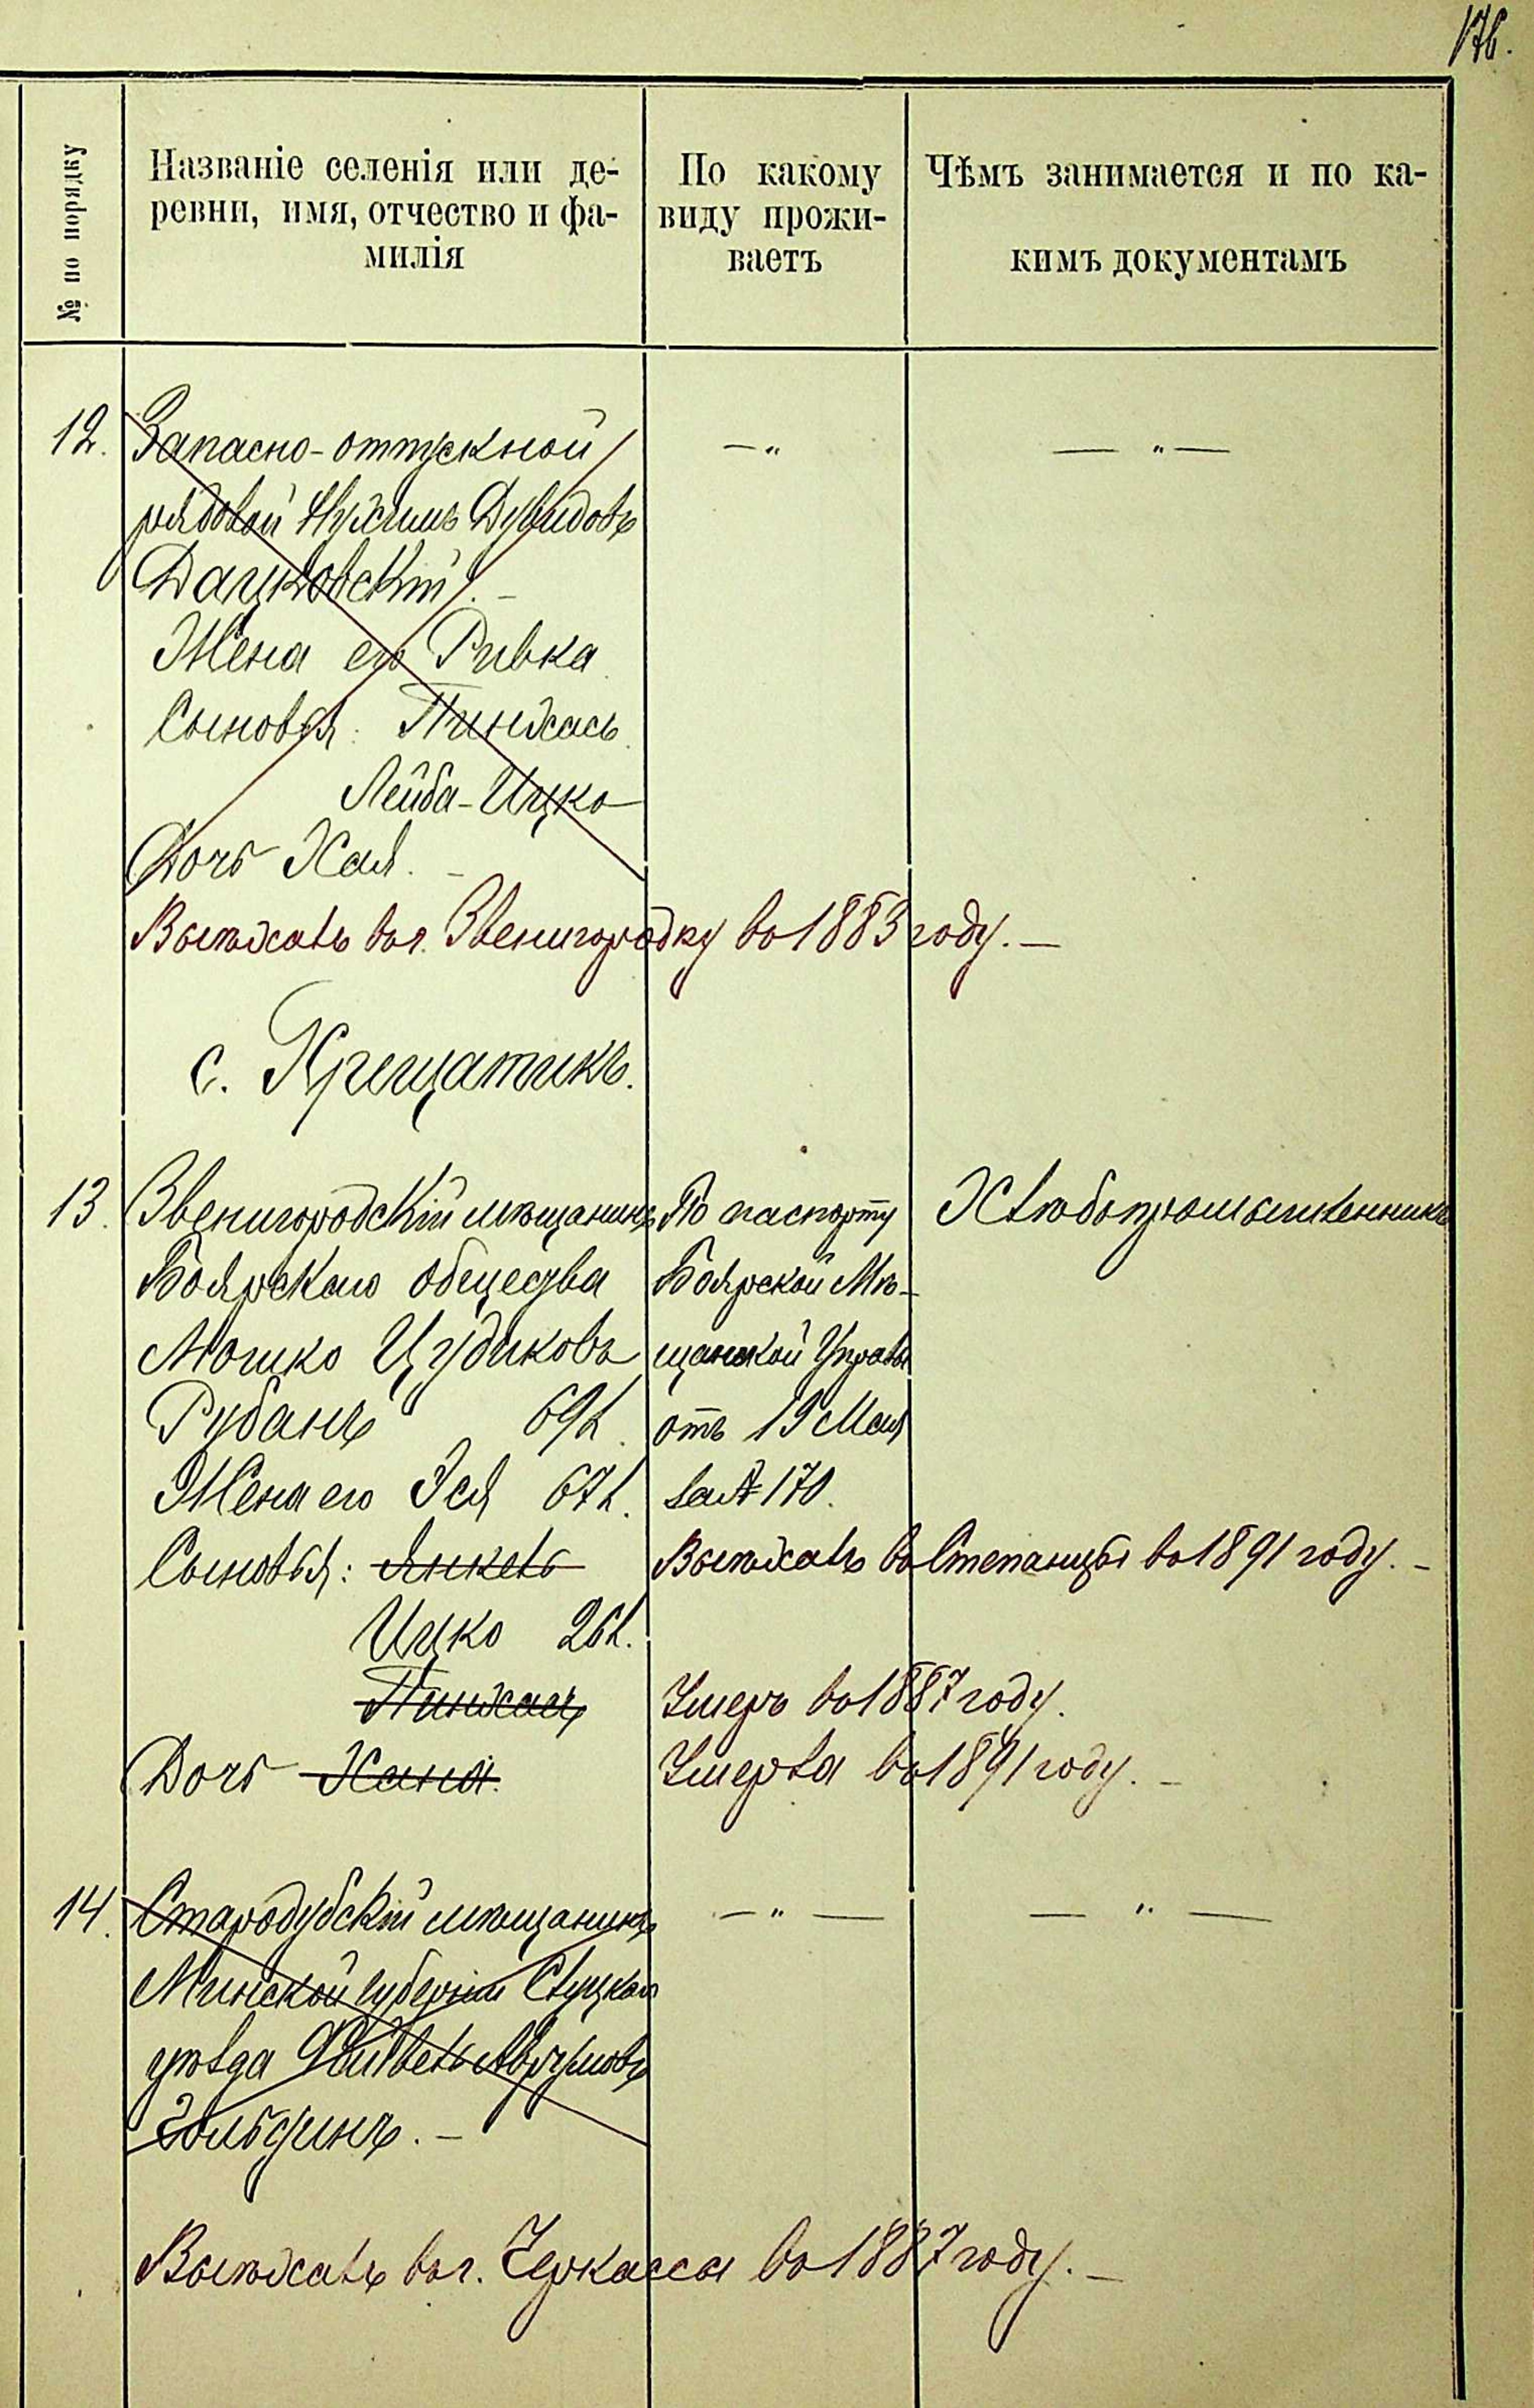 176.
№ по порядку
Названіе селенія или де-
ревни, имя, отчество и фа-
милія
По какому
виду прожи-
ваетъ
Чѣмъ занимается и по ка-
кимъ документамъ
12. Запасно-отпускной —„ — „ —
рядовой Нухимъ Дувидовъ
Дацковскій. –
Жена его Ривка
Сыновья: Пинхасъ
Лейба-Ицко
Дочь Хая. –
Выѣхалъ въ г. Звенигородку въ 1883 году. —
с. Крещатикъ.
13. Звенигородскій мѣщанинъ По паспорту Хлѣбопромышленникъ
Боярскаго общества Боярской Мѣ-
Мошко Цудиковъ щанской Управы
Рубанъ 69 л. отъ 19 Мая
Жена его Эся 67 л. за № 170.
Сыновья: Янкель Выѣхалъ въ Степанцы въ 1891 году. –
Ицко 26 л.
Пинхасъ Умеръ въ 1887 году.
Дочь Хана. Умерла въ 1891 году. –
14. Стародубскій мѣщанинъ — „ — — „ —
Минской губерніи Слуцкаго
уѣзда Файвель Аврумовъ
Гольдинъ. –
Выѣхалъ въ г. Черкассы въ 1887 году. –